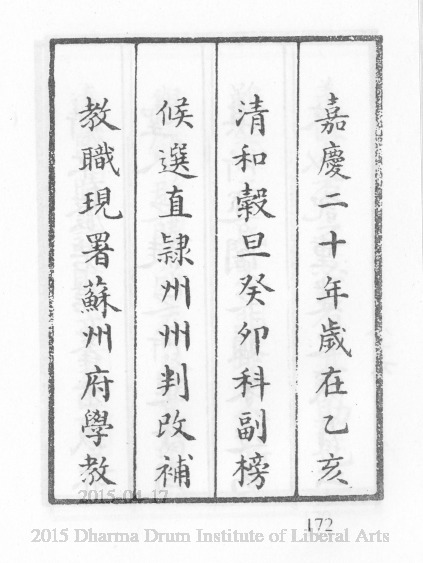 嘉慶二十年歲在乙亥
清和穀旦癸卯科副榜
候選直隸州州判改補
教職現署蘇州府學教
2015-04-17
172
2015 Dharma Drum Institute of Liberal Arts